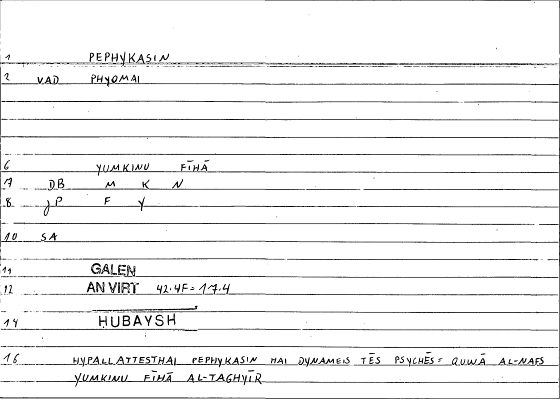 1 PEPHYKASIN
2 VAD PHYOMAI
6 YUMKINU FĪHĀ
7 DB M K N
8 JP F Y
10 SA
11 GALEN
12 AN VIRT 42.4F=17.4
14 HUBAYSH
16 HYPALLATTESTHAI PEPHYKASIN HAI DYNAMEIS TĒS PSYCHĒS= QUWĀ AL-NAFS
YUMKINU FĪHĀ AL-TAGHYĪR